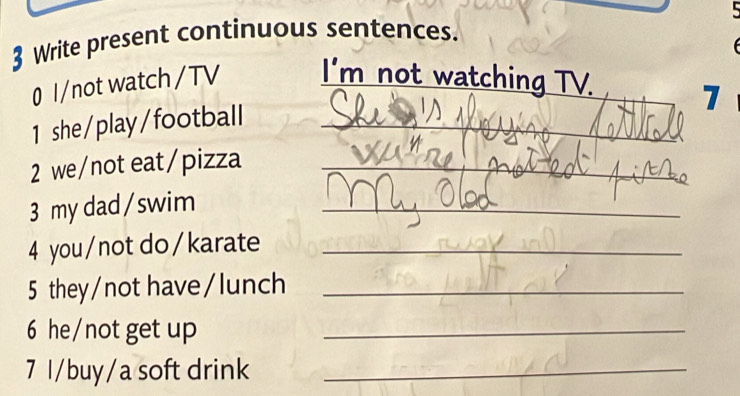 3 Write present continuous sentences.
0 I/not watch/TV I'm not watching TV.
1 she/play/football She's playing football
2 we/not eat/pizza we're
3 my dad/swim My dad
4 you/not do/karate
5 they/not have/lunch
6 he/not get up
7 I/buy/a soft drink
7